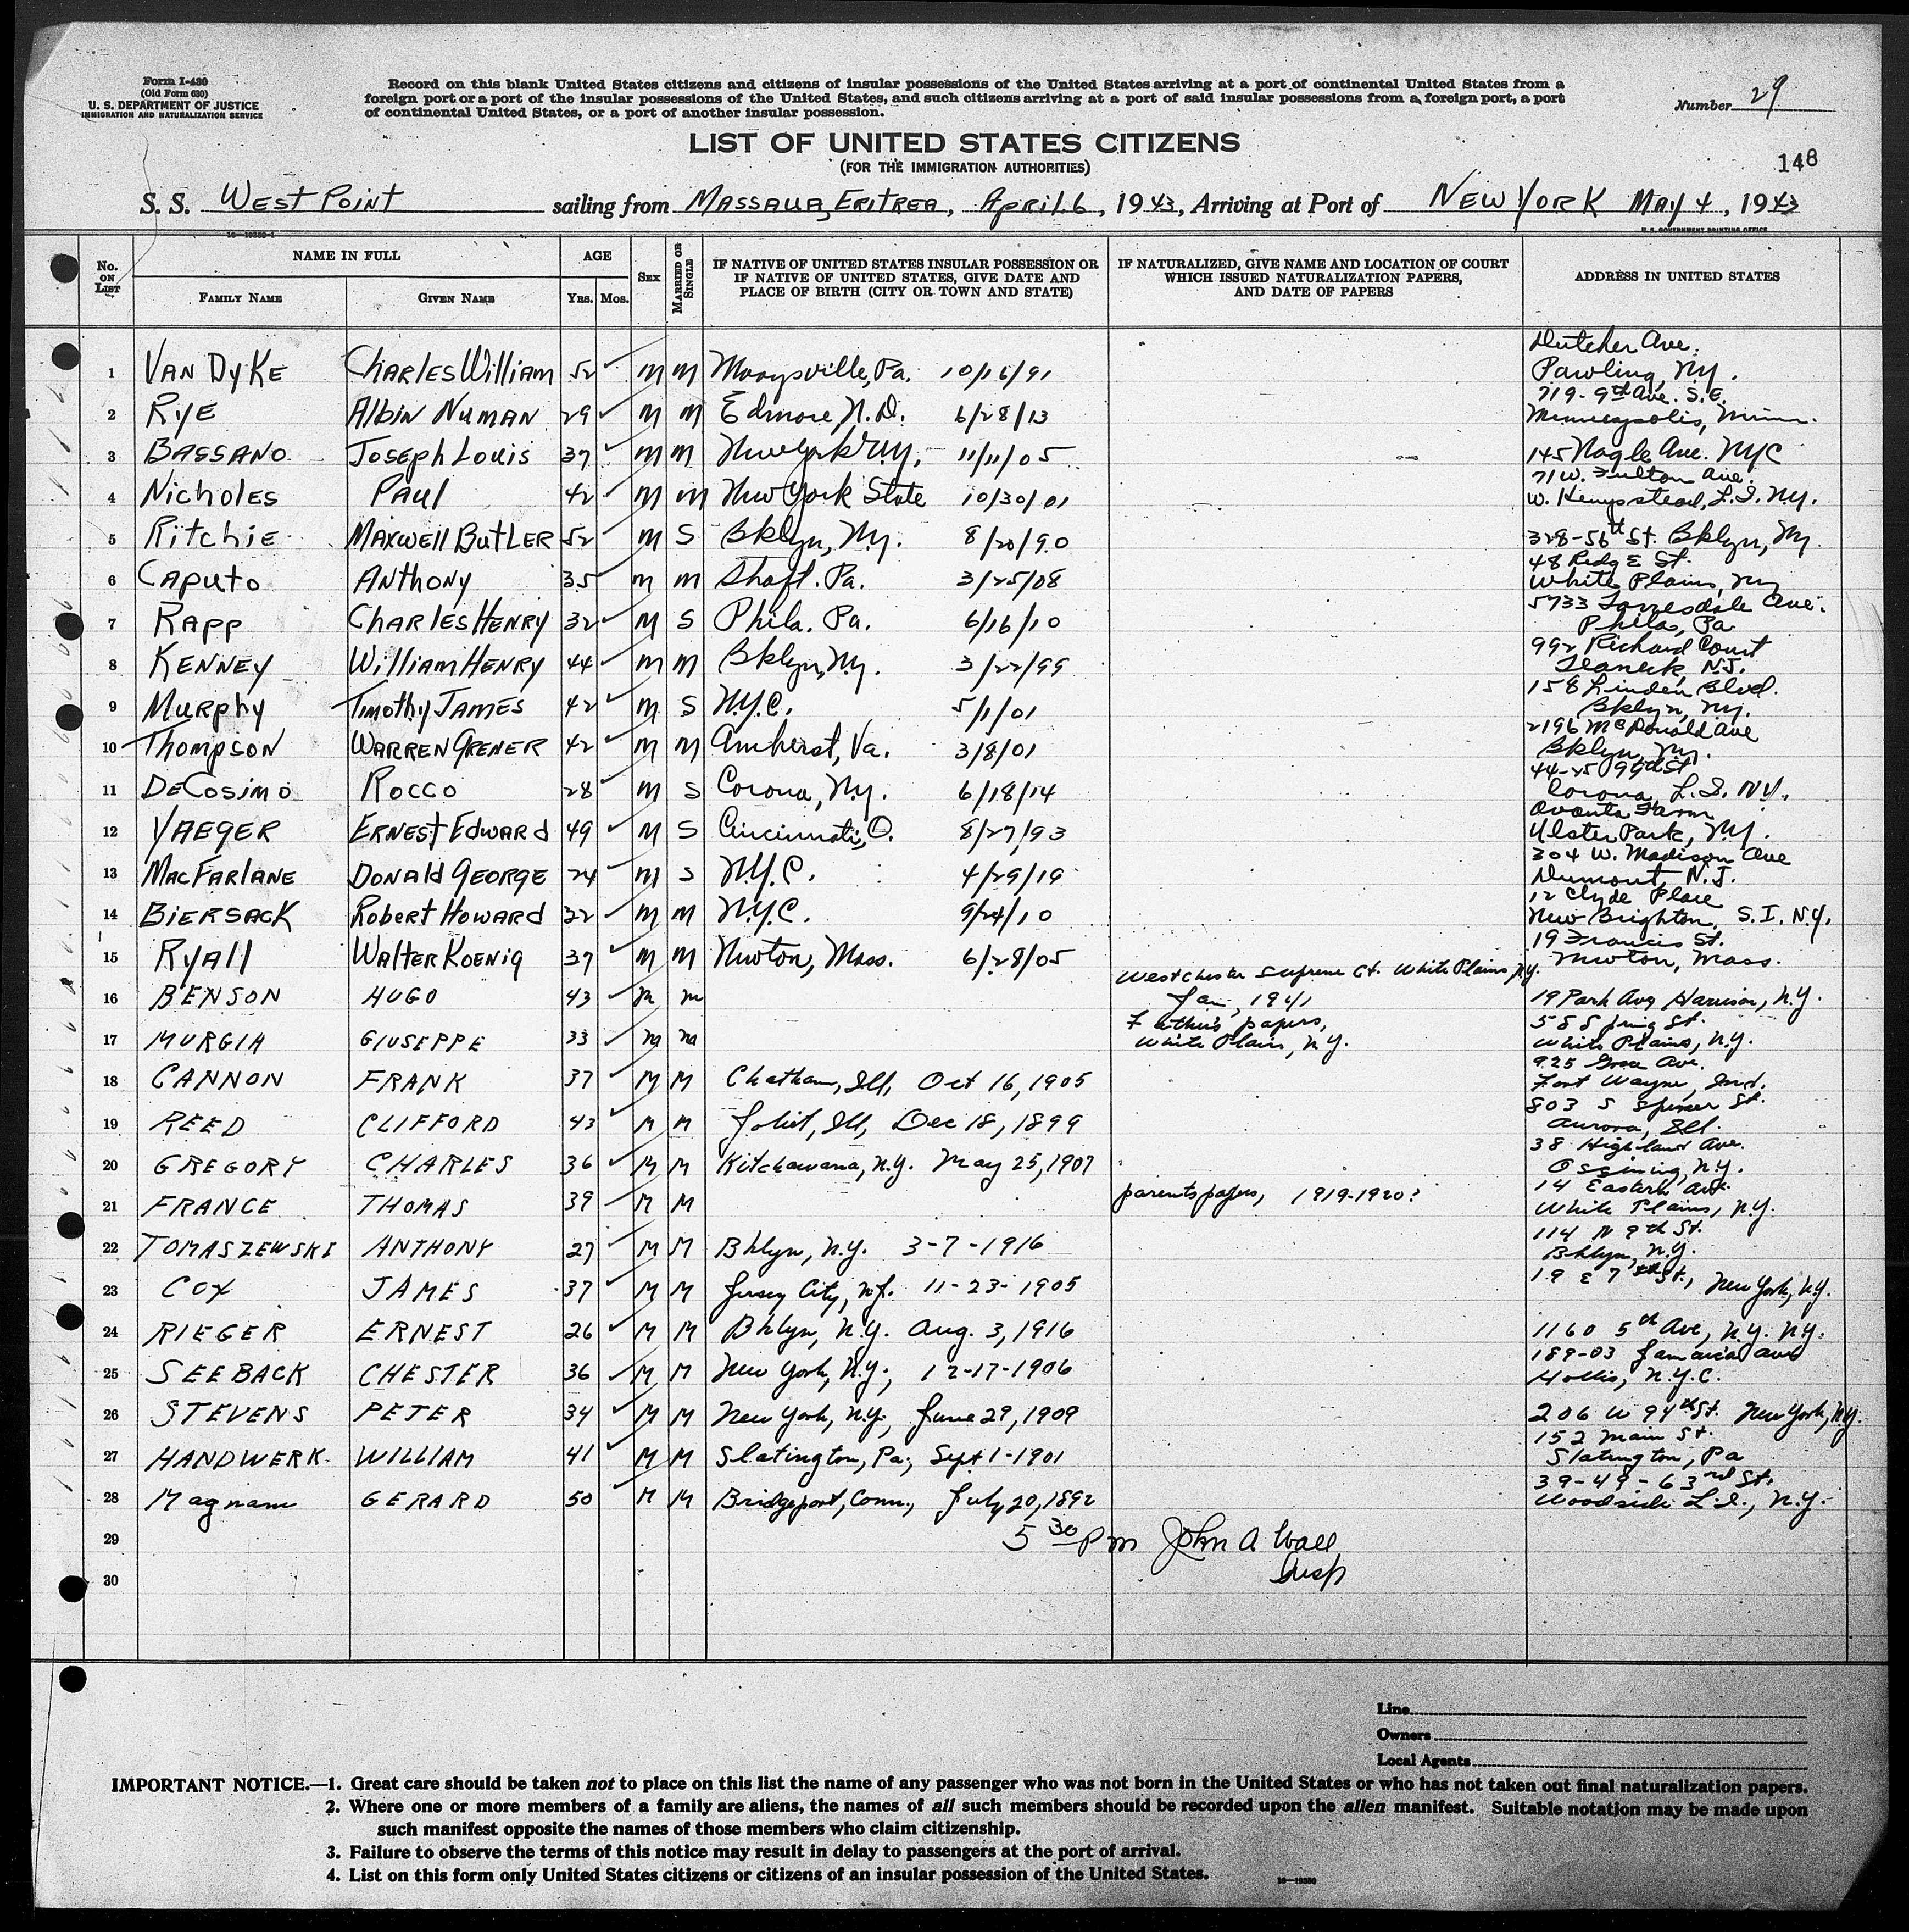 Form I-430
(Old Form 630)
U. S. DEPARTMENT OF JUSTICE
IMMIGRATION AND NATURALIZATION SERVICE
Record on this blank United States citizens and citizens of insular possessions of the United States arriving at a port of continental United States from a
foreign port or a port of the insular possessions of the United States, and such citizens arriving at a port of said insular possessions from a foreign port, a port
of continental United States, or a port of another insular possession.
Number 29
LIST OF UNITED STATES CITIZENS
(FOR THE IMMIGRATION AUTHORITIES)
148
S. S. WEST POINT sailing from MASSAUA, ERITREA, April 6, 1943, Arriving at Port of NEW YORK MAy 4, 1943
16—19350-1 U. S. GOVERNMENT PRINTING OFFICE
No. ON LIST NAME IN FULL AGE SEX MARRIED OR SINGLE IF NATIVE OF UNITED STATES INSULAR POSSESSION OR IF NATIVE OF UNITED STATES, GIVE DATE AND PLACE OF BIRTH (CITY OR TOWN AND STATE) IF NATURALIZED, GIVE NAME AND LOCATION OF COURT WHICH ISSUED NATURALIZATION PAPERS, AND DATE OF PAPERS ADDRESS IN UNITED STATES
FAMILY NAME GIVEN NAME YRS. MOS.
Dutcher Ave.
1 VAN DyKE CHARLES William 52 M M Marysville, Pa. 10/16/91 Pawling, Ny.
719-9th Ave. S.E.
2 RyE Albin NUMAN 29 M M Edmore N.D. 6/28/13 Minneapolis, Minn.
3 BASSANO Joseph Louis 37 M M New York N.Y. 11/11/05 145 Nagle Ave. NYC
71 W. Fulton Ave.
4 Nicholes Paul 42 M M New York State 10/30/01 W. Hempstead, L.I. Ny.
5 Ritchie MAXWEll BUTLER 52 M S Bklyn, Ny. 8/20/90 328-56th St. Bklyn, Ny
48 Ridg E St.
6 CAPUTO ANTHONY 35 M M Shaft. Pa. 3/25/08 White Plains, Ny
5733 Torresdale Ave.
7 RAPP CHARLES HENRY 32 M S Phila. Pa. 6/16/10 Phila, Pa
992 Richard Court
8 KENNEY William HENRY 44 M M Bklyn, Ny. 3/22/99 Teaneck, N.J.
158 Linden Blvd.
9 MURPhy Timothy JAMES 42 M S N.Y.C. 5/1/01 Bklyn, Ny.
2196 McDonald Ave
10 Thompson WARREN GRENER 42 M M Amherst, Va. 3/8/01 Bklyn, Ny.
44-25 99th St
11 DeCosimo Rocco 28 M S Corona, Ny. 6/18/14 Corona, L.I. NY.
Farm
12 YAEGER ERNEST Edward 49 M S Cincinnati, O. 8/27/93 Ulster Park, Ny.
304 W. Madison Ave
13 MacFarlane DONAld GEORGE 24 M S N.Y.C. 4/29/19 Dumont, N.J.
12 Clyde Place
14 BIERSACK Robert Howard 32 M M N.Y.C. 9/24/10 New Brighton, S.I. N.Y.
19 Francis St.
15 RyAll WAlTER KOENig 37 M M Newton, Mass. 6/28/05 Newton, Mass.
Westchester Supreme Ct. White Plains, N.Y.
16 BENSON HUGO 43 M M Jan, 1941 19 Park Ave Harrison, N.Y.
Father's papers, 58 Spring St.
17 MURGIA GIUSEPPE 33 M M White Plains, N.Y. White Plains, N.Y.
925 Ave.
18 CANNON FRANK 37 M M Chatham, Ill, Oct 16, 1905 Fort Wayne, Ind.
803 S Spencer St.
19 REED CLIFFORD 43 M M Joliet, Ill, Dec 18, 1899 Aurora, Ill.
38 Highland Ave.
20 GREGORY CHARLES 36 M M Kitchawana, N.Y. May 25, 1907 Ossining, N.Y.
14 Eastern Ave.
21 FRANCE THOMAS 39 M M parents papers, 1919-1920? White Plains, N.Y.
114 N 9th St.
22 TOMASZEWSKI ANTHONY 27 M M Bklyn, N.Y. 3-7-1916 Bklyn, N.Y.
23 COX JAMES 37 M M Jersey City, N.J. 11-23-1905 19 E 7th St., New York, N.Y.
24 RIEGER ERNEST 26 M M Bklyn, N.Y. Aug. 3, 1916 1160 5th Ave, N.Y. N.Y.
189-03 Jamaica Ave
25 SEEBACK CHESTER 36 M M New York, N.Y., 12-17-1906 Hollis, N.Y.C.
26 STEVENS PETER 34 M M New York, N.Y., June 29, 1909 206 W 94th St. New York, N.Y.
152 Main St.
27 HANDWERK WILLIAM 41 M M Slatington, Pa, Sept 1-1901 Slatington, Pa
39-49-63rd St.
28 Magnam GERARD 50 M M Bridgeport, Conn., July 20, 1892 Woodside L.I., N.Y.
29 5 30 pm John A Wall
30 Insp
Line
Owners
Local Agents
IMPORTANT NOTICE.—1. Great care should be taken not to place on this list the name of any passenger who was not born in the United States or who has not taken out final naturalization papers.
2. Where one or more members of a family are aliens, the names of all such members should be recorded upon the alien manifest. Suitable notation may be made upon
such manifest opposite the names of those members who claim citizenship.
3. Failure to observe the terms of this notice may result in delay to passengers at the port of arrival.
4. List on this form only United States citizens or citizens of an insular possession of the United States.
16—19350